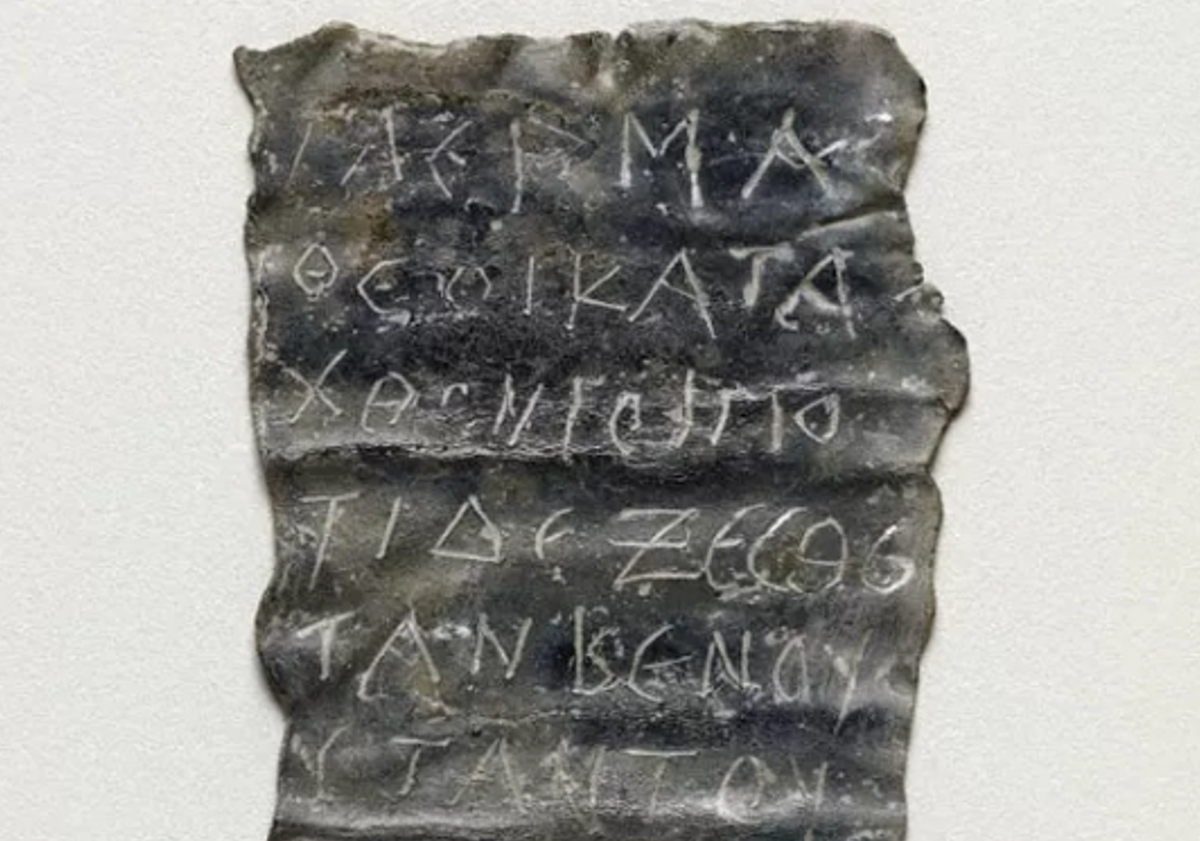 ΓΑΕΡΜΑ
ΘΕΟΙΚΑΤΑ
ΧΘΟΝΙΟΙΠΟ
ΤΙΔΕΖΕϹΘΕ
ΤΑΝΒΕΝΟΥ
ϹΤΑΝΤΟΥ